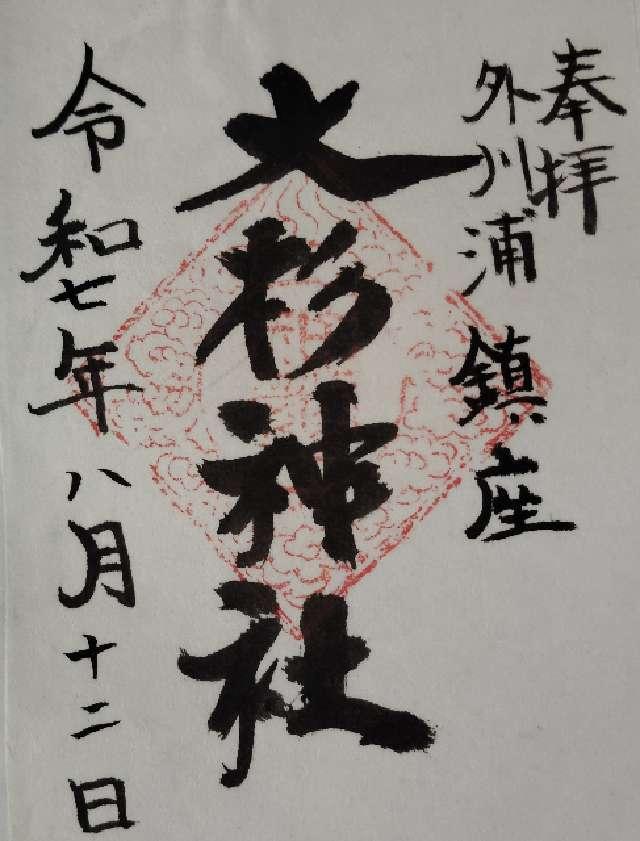 奉拝
外川浦鎮座
大杉神社
令和七年八月十二日